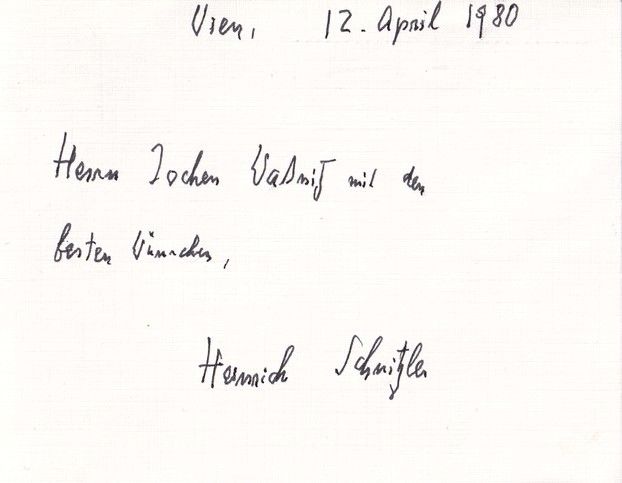 Wien, 12. April 1980
Herrn Jochen mit den
besten Wünschen,
Heinrich Schnitzler